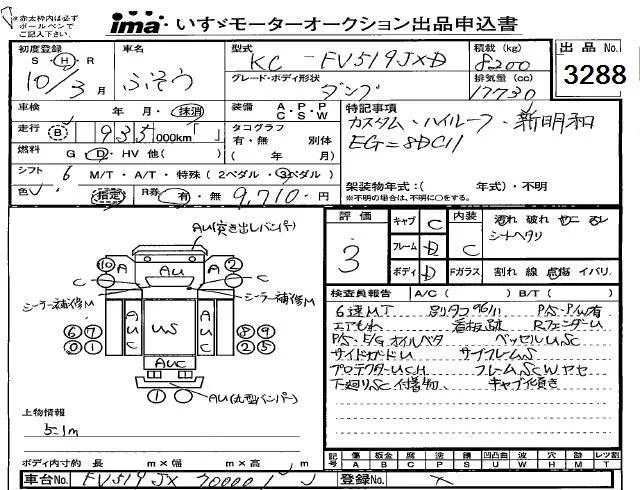 *赤太枠内は必ずボールペンでご記入下さい。
ima いすゞモーターオークション出品申込書
初度登録 S・H・R 10/3月
車名 ふそう
型式 KC-FV519JXD
グレード・ボディ形状 ダンプ
積載(kg) 8200
排気量(cc) 17730
出品No. 3288
車検 年・月・抹消
装備 A.P.P C.S.W
特記事項
カスタム・ハイルーフ・新明和
EG=8DC11
走行 B 935,000km「 」
タコグラフ 有・無 別体 ( 年 月)
燃料 G・D・HV 他( )
シフト 6 M/T・A/T・特殊(2ペダル・3ペダル)
架装物年式:( 年式)・不明
※不明の場合は、不明に○をする。
色 指定 R券 有・無 9,710円
評価 3
キャブ C
フレーム D
ボディ D
内装 C
汚れ 破れ ヤニ
シートヘタリ
Fガラス 割れ 線 点傷 イバリ
AU(突き出しバンパー)
10 A AU A 2
C C
シーラー補修M シーラー補修M
AUC US AUC
6 7 8 9
0 1 2 5
AUC
1 AU(丸型バンパー)
検査員報告 A/C( ) B/T( )
6速MT 別タコ96/11 P/S・P/W有
エアもれ 看板跡 RフェンダーU
P/S・E/G オイルベタ ベッセルUSC
サイドガードU サブフレームS
プロテクターUCH フレームSCWヤセ
下廻りSC 付着物
上物情報
5.1m
ボディ内寸約 長 m×幅 m×高 m
記号 傷A 板金B 腐C 塗P 錆S 凹凸曲U 波W 交X 穴H 跡M レツ割T
車台No. FV519JX 700001
登録No.